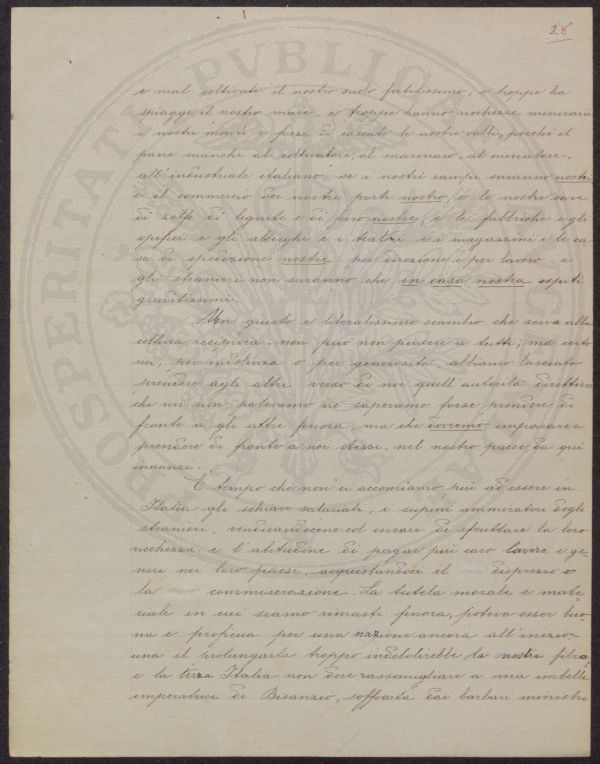 28
e mal coltivate il nostro suolo fertilissimo, e troppe ha
spiagge il nostro mare, e troppe hanno ricchezze minerarie
i nostri monti e forza di cascate le nostre valli, perché il
pane manchi al coltivatore, al marinaio, al minatore,
all'industriale italiano, se i nostri campi saranno nostri,
e il commercio dei nostri porti nostro, e le nostre cave
di zolfo di lignite e di ferro nostre, e le fabbriche e gli
opifici e gli alberghi e i teatri e i magazzini e le ca
se di spedizione nostre per direzione e per lavoro e
gli stranieri non saranno che in casa nostra ospiti
graditissimi.
Un giusto e liberalissimo scambio che serva alla
coltura reciproca, non può non piacere a tutti; ma certo
noi, per indolenza o per generosità, abbiamo lasciato
prendere agli altri verso di noi quell'autorità direttiva
che noi non potevamo né sapevamo forse prendere di
fronte a gli altri finora, ma che dovremo imparare a
prendere di fronte a noi stessi, nel nostro paese da qui
innanzi.
È tempo che non ci accomodiamo più ad essere in
Italia gli schiavi salariati, i supini ammiratori degli
stranieri, vendicandocene col cercare di sfruttare la loro
ricchezza e l'abitudine di pagar più caro lavoro e ge
neri nei loro paesi, acquistandoci il disprezzo o
la commiserazione. La tutela morale e mate
riale in cui siamo rimasti finora, poteva esser buo
na e proficua per una nazione ancora all'inizio
una il prolungarla troppo indebolirebbe la nostra fibra
e la terza Italia non deve rassomigliare a una imbelle
imperatrice di Bisanzio, soffocata dai barbari ministri
PROSPERITATI PVBLICAE